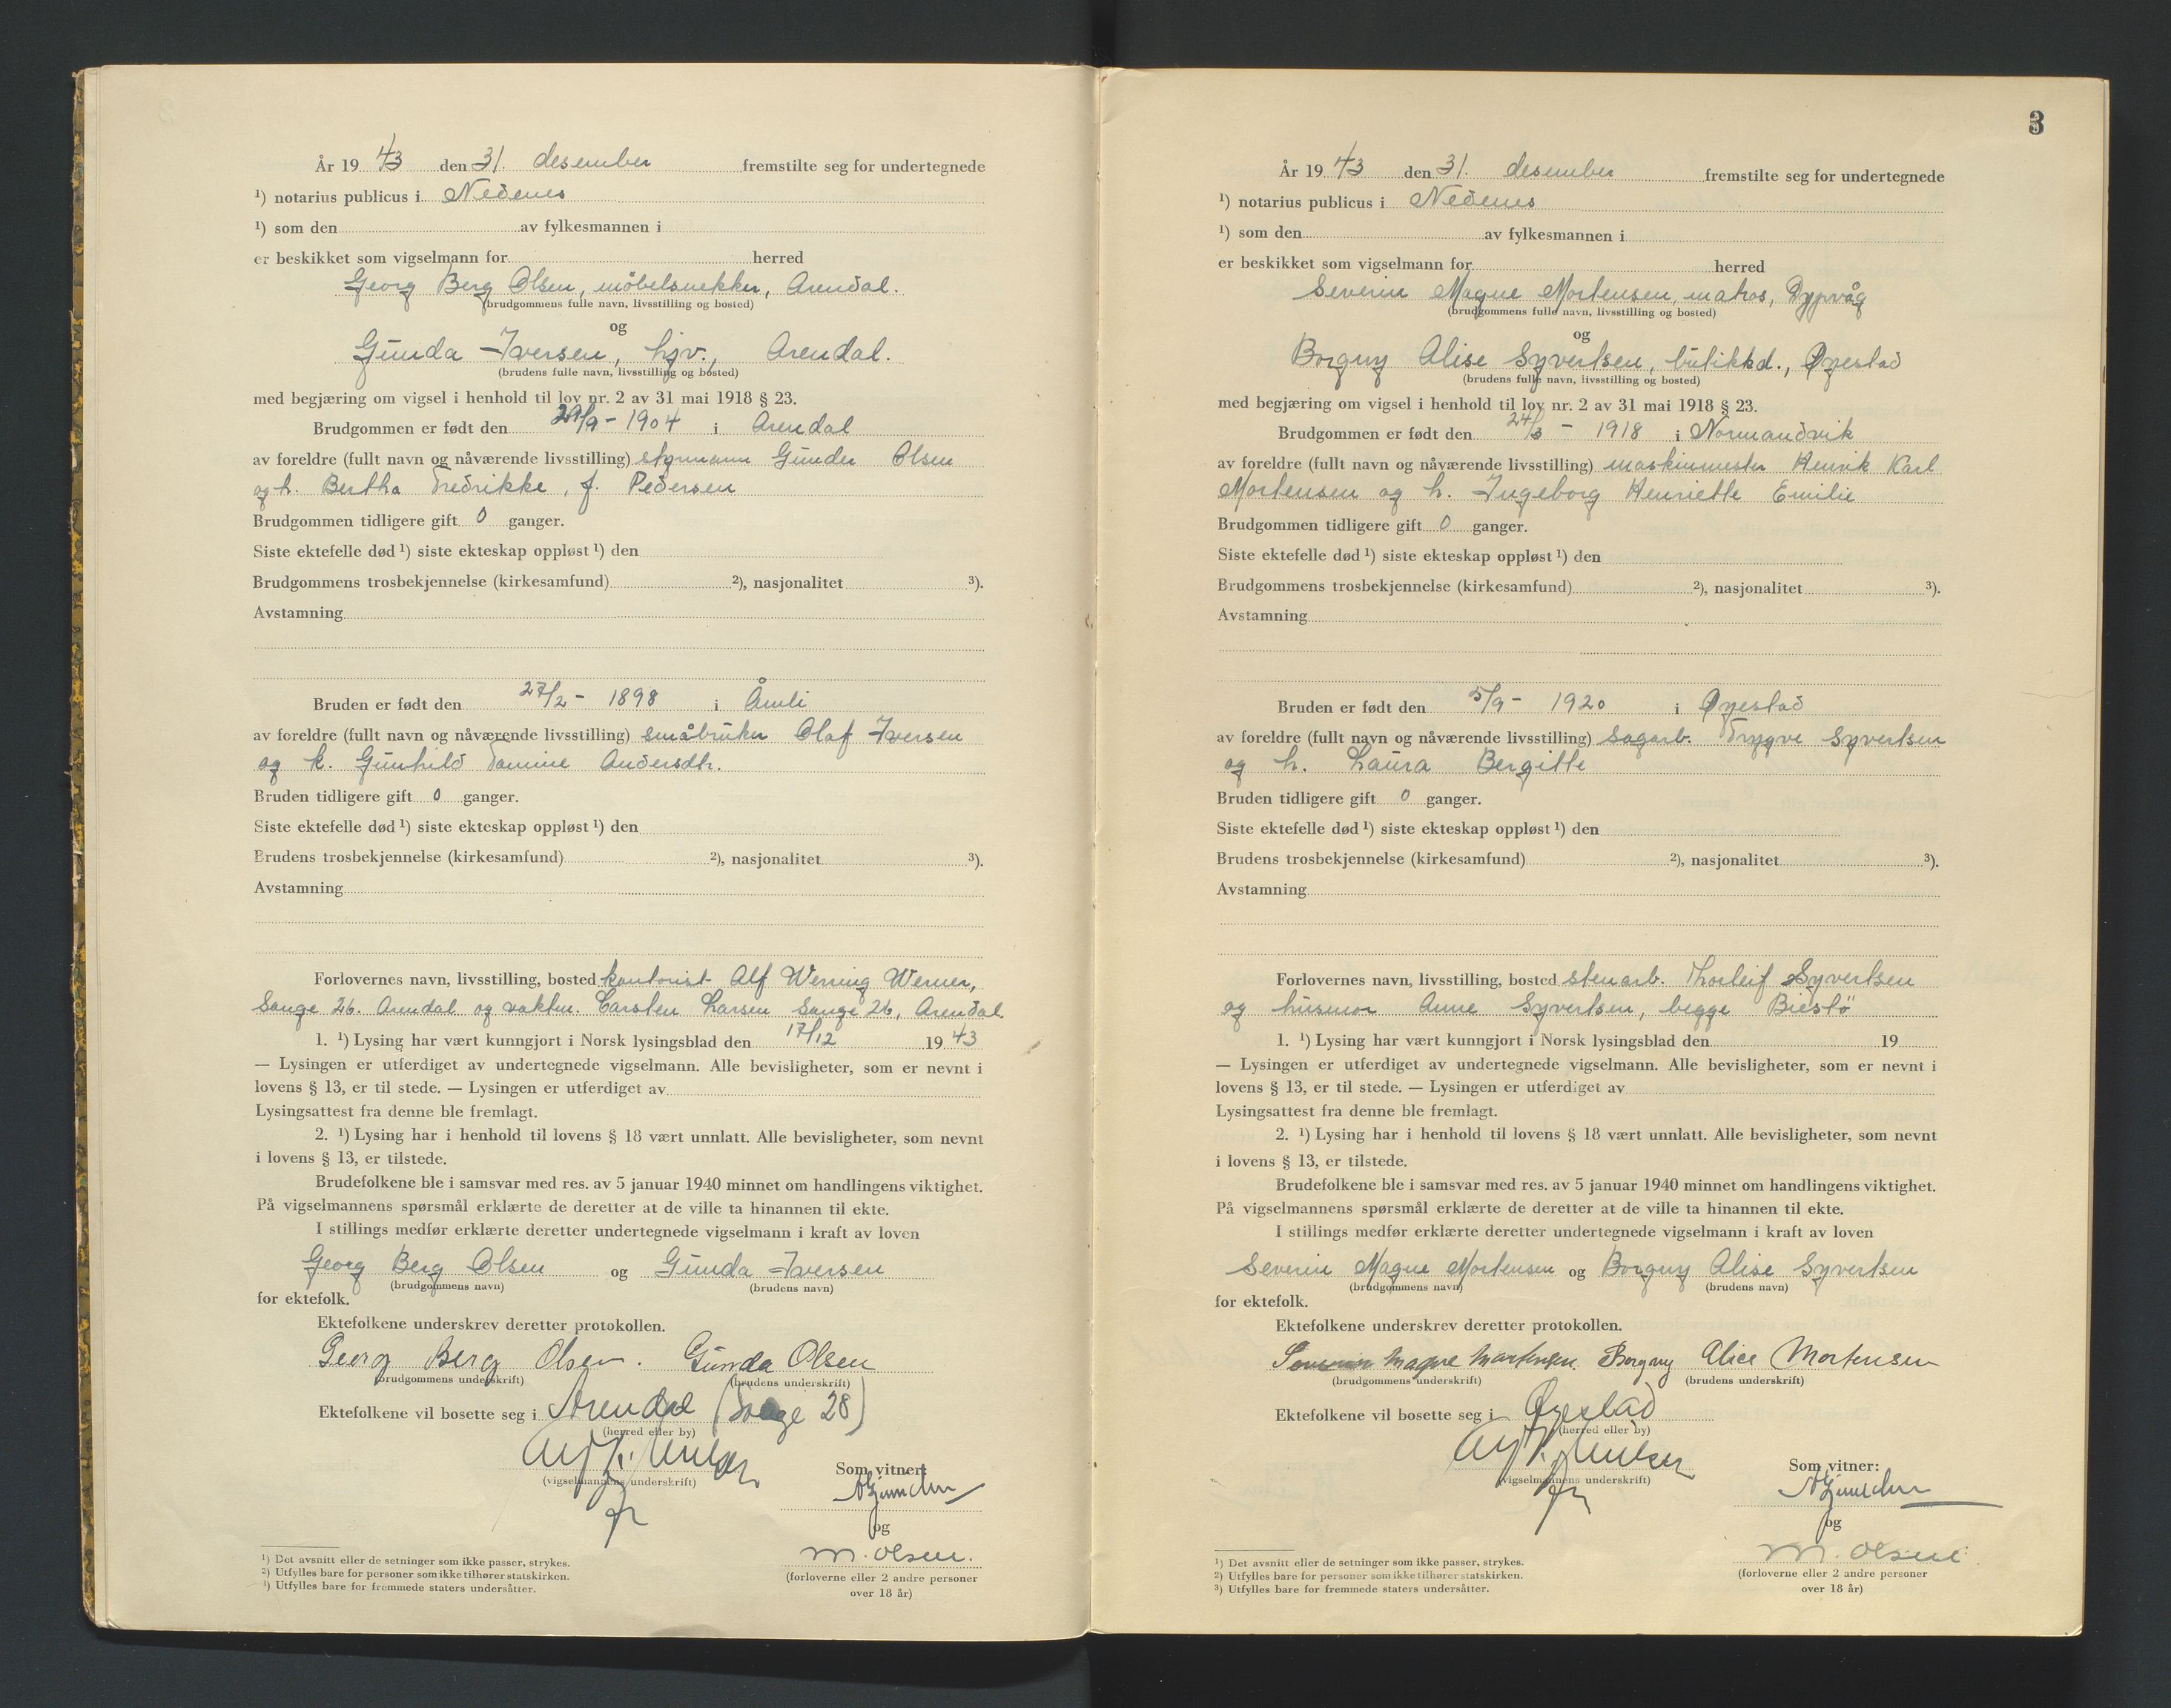 År 19 43 den 31. desember fremstilte seg for undertegnede
¹) notarius publicus i Nedenes
¹) som den av fylkesmannen i
er beskikket som vigselmann for herred
Georg Berg Olsen, möbelsnekker, Arendal.
(brudgommens fulle navn, livsstilling og bosted)
og
Gunda Iversen, hjv., Arendal.
(brudens fulle navn, livsstilling og bosted)
med begjæring om vigsel i henhold til lov nr. 2 av 31 mai 1918 § 23.
Brudgommen er født den 29/9 - 1904 i Arendal
av foreldre (fullt navn og nåværende livsstilling) styrmann Gunder Olsen
og h. Bertha Fredrikke, f. Pedersen
Brudgommen tidligere gift 0 ganger.
Siste ektefelle død ¹) siste ekteskap oppløst ¹) den
Brudgommens trosbekjennelse (kirkesamfund) ²), nasjonalitet ³).
Avstamning
Bruden er født den 27/2 - 1898 i Åmli
av foreldre (fullt navn og nåværende livsstilling) småbruker Olaf Iversen
og k. Gunhild Tomine Andersdtr.
Bruden tidligere gift 0 ganger.
Siste ektefelle død ¹) siste ekteskap oppløst ¹) den
Brudens trosbekjennelse (kirkesamfund) ²), nasjonalitet ³).
Avstamning
Forlovernes navn, livsstilling, bosted kontorist Alf Werring Werner,
Songe 26. Arendal og vaktm. Carsten Larsen Songe 26, Arendal
1. ¹) Lysing har vært kunngjort i Norsk lysingsblad den 17/12 19 43
— Lysingen er utferdiget av undertegnede vigselmann. Alle bevisligheter, som er nevnt i
lovens § 13, er til stede. — Lysingen er utferdiget av
Lysingsattest fra denne ble fremlagt.
2. ¹) Lysing har i henhold til lovens § 18 vært unnlatt. Alle bevisligheter, som nevnt
i lovens § 13, er tilstede.
Brudefolkene ble i samsvar med res. av 5 januar 1940 minnet om handlingens viktighet.
På vigselmannens spørsmål erklærte de deretter at de ville ta hinannen til ekte.
I stillings medfør erklærte deretter undertegnede vigselmann i kraft av loven
Georg Berg Olsen og Gunda Iversen
(brudgommens navn) (brudens navn)
for ektefolk.
Ektefolkene underskrev deretter protokollen.
Georg Berg Olsen. Gunda Olsen
(brudgommens underskrift) (brudens underskrift)
Ektefolkene vil bosette seg i Arendal (Songe 28)
(herred eller by)
(vigselmannens underskrift)
Som vitner:
og
M. Olsen.
(forloverne eller 2 andre personer
over 18 år)
¹) Det avsnitt eller de setninger som ikke passer, strykes.
²) Utfylles bare for personer som ikke tilhører statskirken.
³) Utfylles bare for fremmede staters undersåtter.
3
År 19 43 den 31. desember fremstilte seg for undertegnede
¹) notarius publicus i Nedenes
¹) som den av fylkesmannen i
er beskikket som vigselmann for herred
Severin Magne Mortensen, matros, Dypvåg
(brudgommens fulle navn, livsstilling og bosted)
og
Borgny Alise Syvertsen, butikkd., Øyestad
(brudens fulle navn, livsstilling og bosted)
med begjæring om vigsel i henhold til lov nr. 2 av 31 mai 1918 § 23.
Brudgommen er født den 24/3 - 1918 i Normandvik
av foreldre (fullt navn og nåværende livsstilling) maskinmester Henrik Karl
Mortensen og h. Ingeborg Henriette Emilie
Brudgommen tidligere gift 0 ganger.
Siste ektefelle død ¹) siste ekteskap oppløst ¹) den
Brudgommens trosbekjennelse (kirkesamfund) ²), nasjonalitet ³).
Avstamning
Bruden er født den 5/9 - 1920 i Øyestad
av foreldre (fullt navn og nåværende livsstilling) sagarb. Trygve Syvertsen
og h. Laura Bergitte
Bruden tidligere gift 0 ganger.
Siste ektefelle død ¹) siste ekteskap oppløst ¹) den
Brudens trosbekjennelse (kirkesamfund) ²), nasjonalitet ³).
Avstamning
Forlovernes navn, livsstilling, bosted stenarb. Thorleif Syvertsen
og husmor Anne Syvertsen, begge Biestö
1. ¹) Lysing har vært kunngjort i Norsk lysingsblad den 19
— Lysingen er utferdiget av undertegnede vigselmann. Alle bevisligheter, som er nevnt i
lovens § 13, er til stede. — Lysingen er utferdiget av
Lysingsattest fra denne ble fremlagt.
2. ¹) Lysing har i henhold til lovens § 18 vært unnlatt. Alle bevisligheter, som nevnt
i lovens § 13, er tilstede.
Brudefolkene ble i samsvar med res. av 5 januar 1940 minnet om handlingens viktighet.
På vigselmannens spørsmål erklærte de deretter at de ville ta hinannen til ekte.
I stillings medfør erklærte deretter undertegnede vigselmann i kraft av loven
Severin Magne Mortensen og Borgny Alise Syvertsen
(brudgommens navn) (brudens navn)
for ektefolk.
Ektefolkene underskrev deretter protokollen.
Severin Magne Mortensen. Borgny Alice Mortensen
(brudgommens underskrift) (brudens underskrift)
Ektefolkene vil bosette seg i Øyestad
(herred eller by)
(vigselmannens underskrift)
Som vitner:
og
M. Olsen.
(forloverne eller 2 andre personer
over 18 år)
¹) Det avsnitt eller de setninger som ikke passer, strykes.
²) Utfylles bare for personer som ikke tilhører statskirken.
³) Utfylles bare for fremmede staters undersåtter.